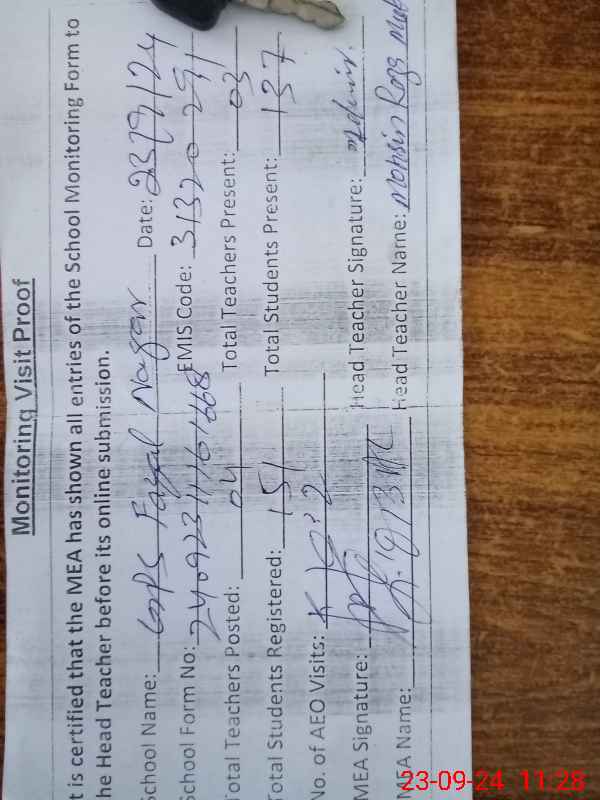 Monitoring Visit Proof
t is certified that the MEA has shown all entries of the School Monitoring Form to
he Head Teacher before its online submission.
School Name: GPS Fazal Nagar Date: 23/9/24
School Form No: EMIS Code: 31320291
Total Teachers Posted: 04 Total Teachers Present: 03
Total Students Registered: 151 Total Students Present: 137
No. of AEO Visits: 2
MEA Signature: Head Teacher Signature:
MEA Name: Head Teacher Name: Mohsin Raza
23-09-24 11:28